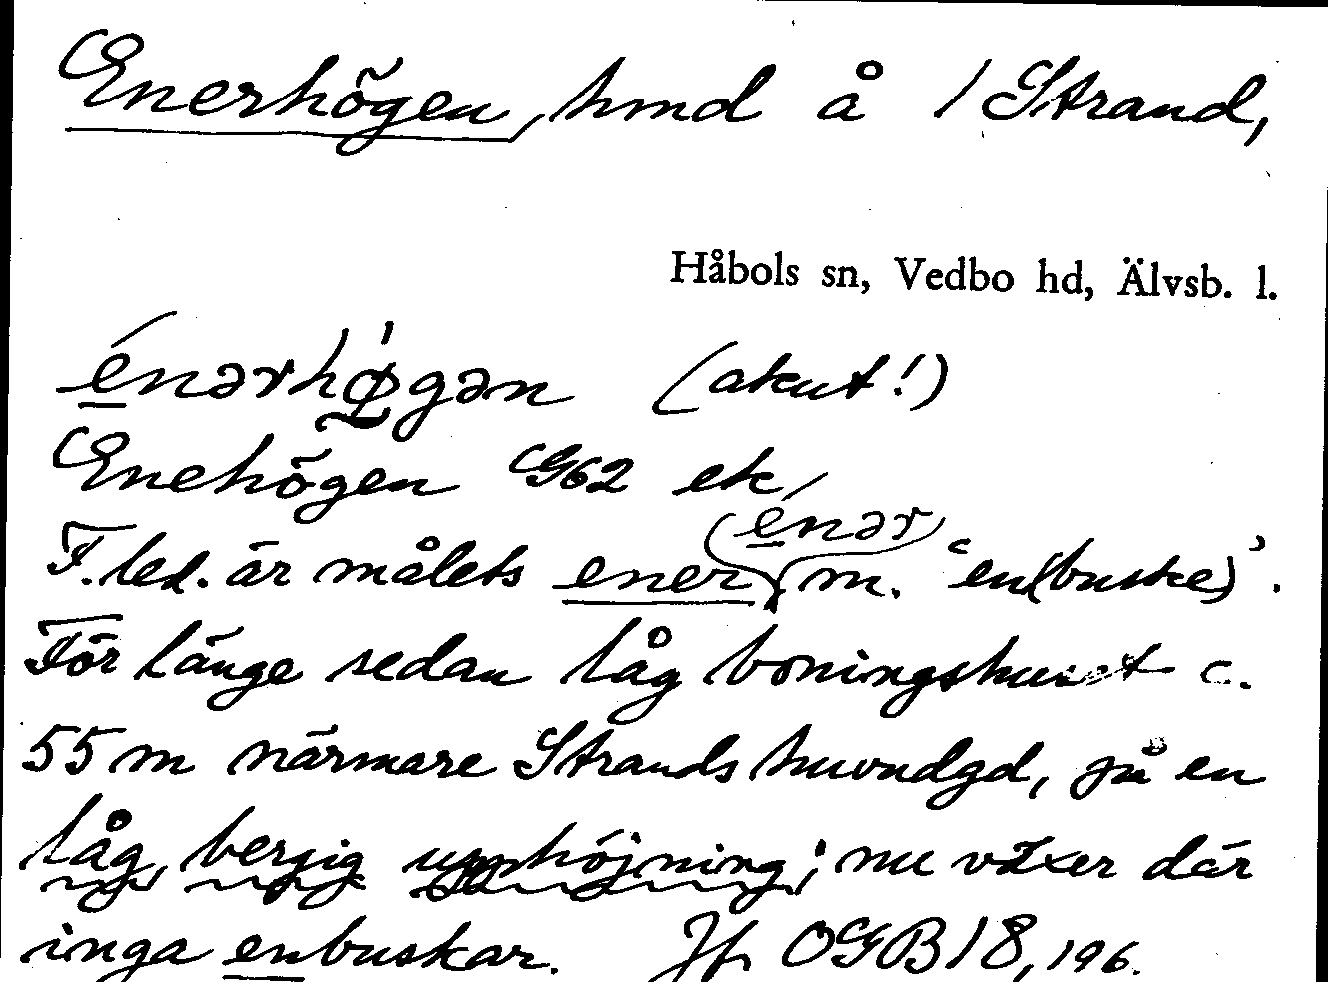 Enerhögen, hmd å 1 Strand,
Håbols sn, Vedbo hd, Älvsb. l.
énərhø̀gən (akut!)
Enehögen G62 ek,
F.led. är målets ener (enər) m. 'en(buske)'.
För länge sedan låg boningshuset c.
55 m närmare Strands huvudgd, på en
låg, bergig upphöjning; nu växer där
inga enbuskar. Jfr OGB 18, 196.